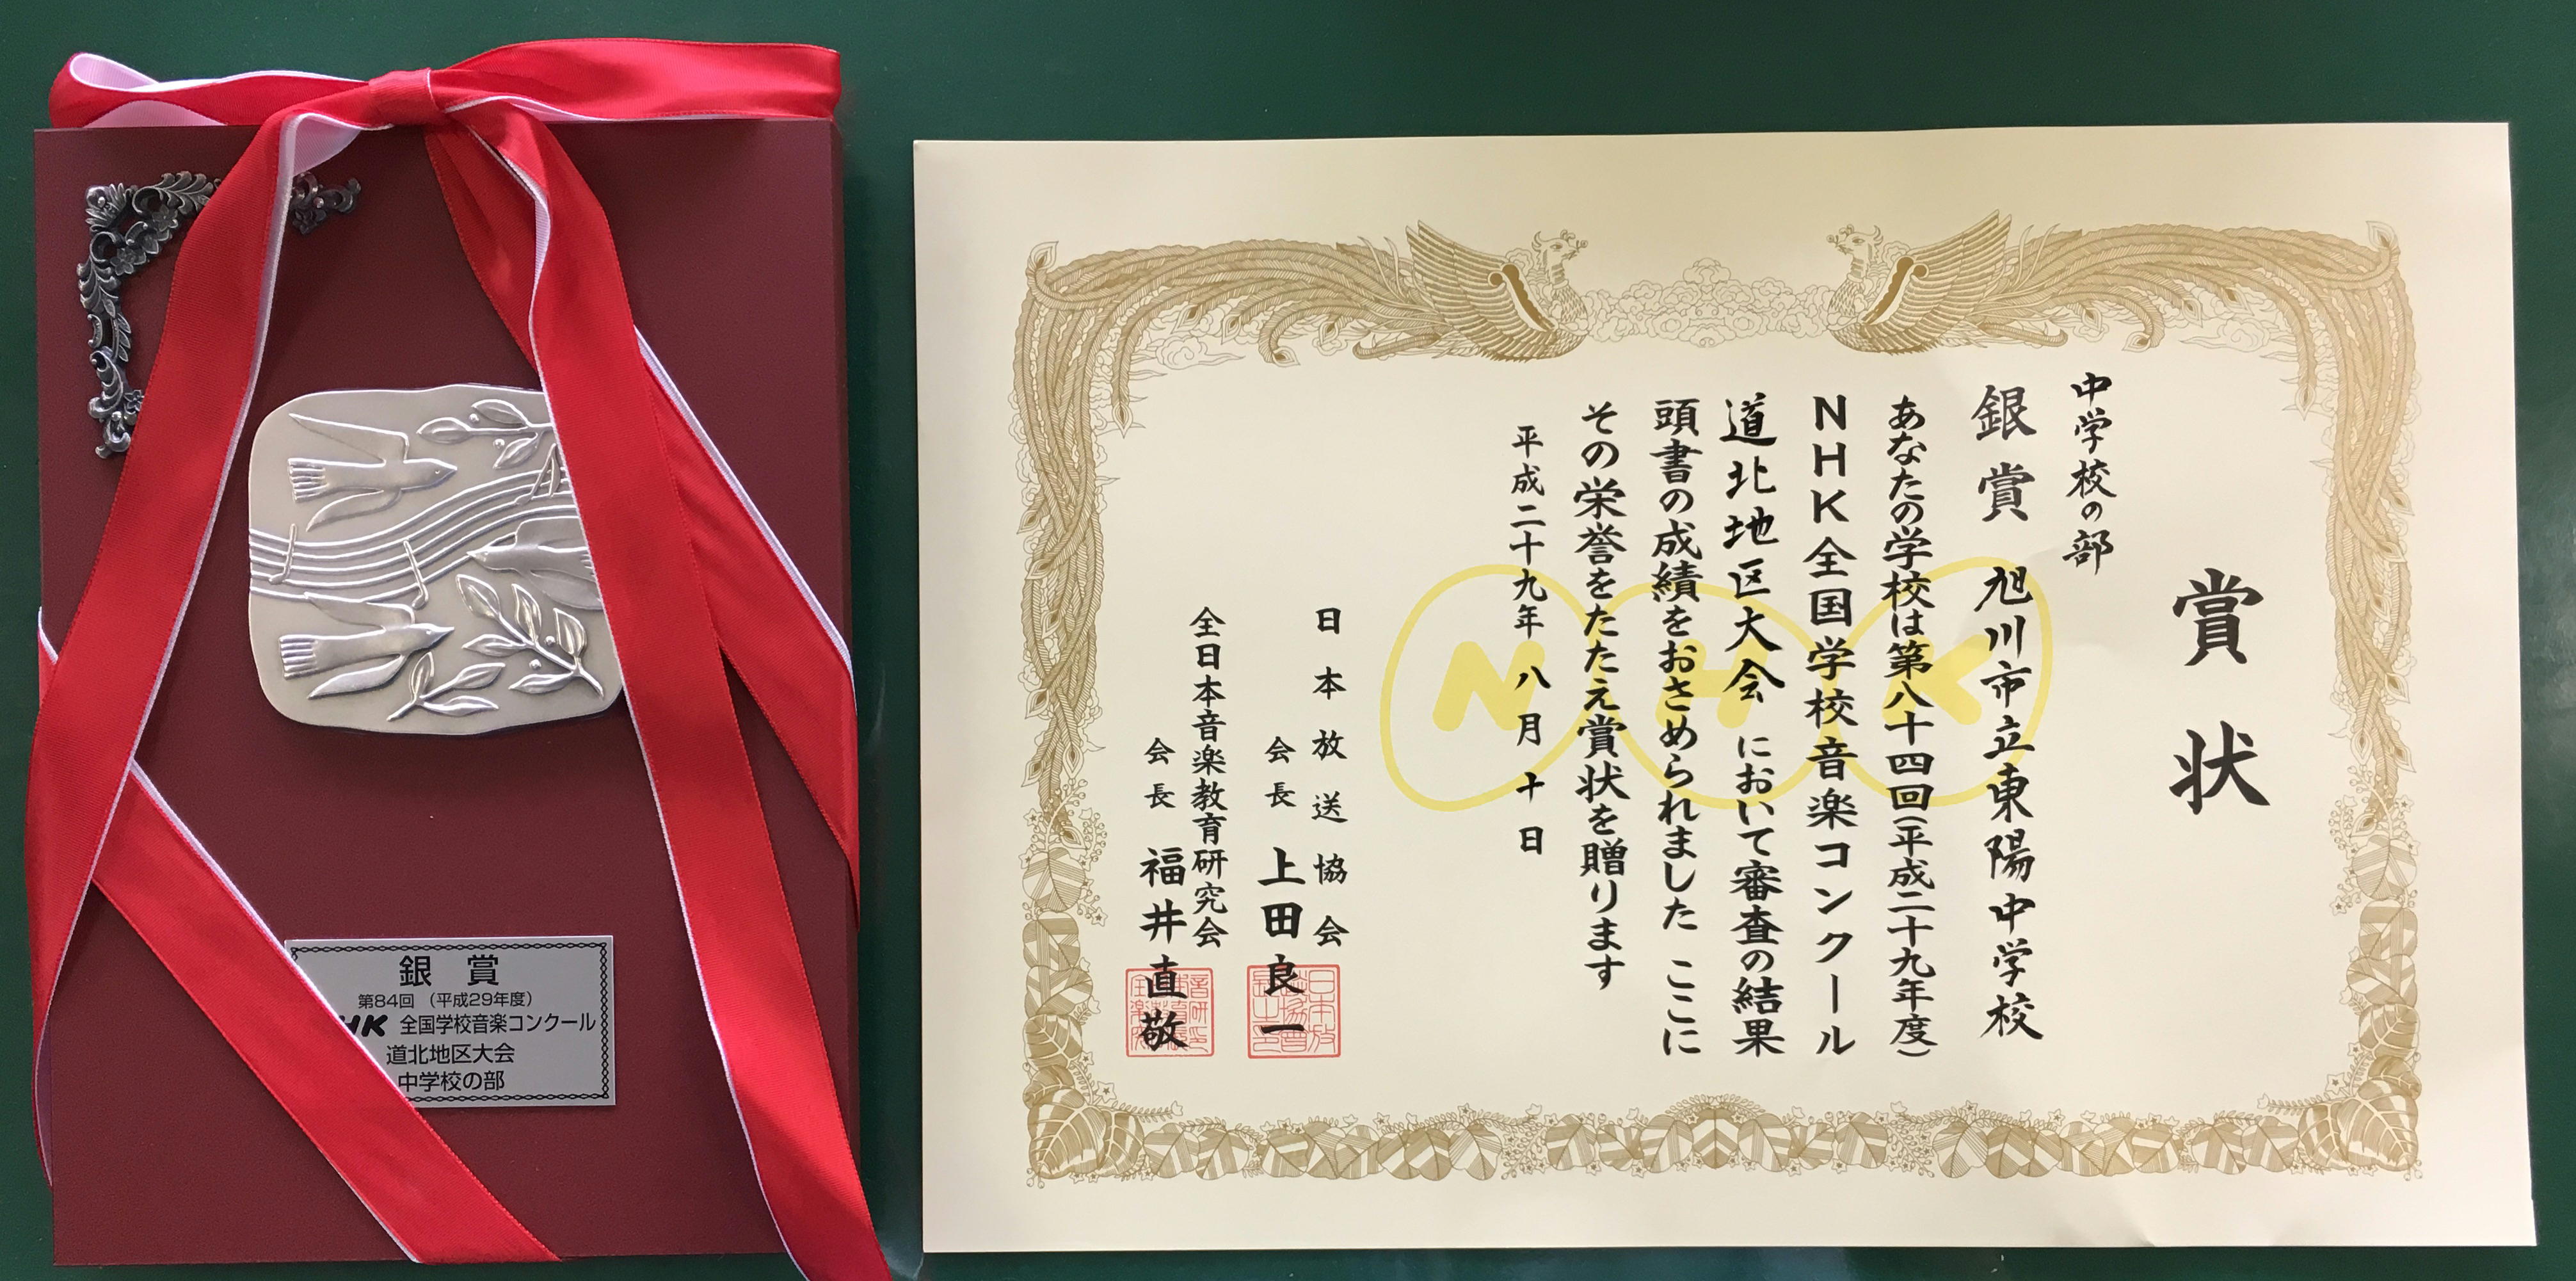 銀賞
第84回(平成29年度)
HK 全国学校音楽コンクール
道北地区大会
中学校の部
賞状
中学校の部
銀賞 旭川市立東陽中学校
あなたの学校は第八十四回(平成二十九年度)
NHK全国学校音楽コンクール
道北地区大会 において審査の結果
頭書の成績をおさめられました ここに
その栄誉をたたえ賞状を贈ります
平成二十九年八月十日
日本放送協会
会長 上田良一
全日本音楽教育研究会
会長 福井直敬
NHK